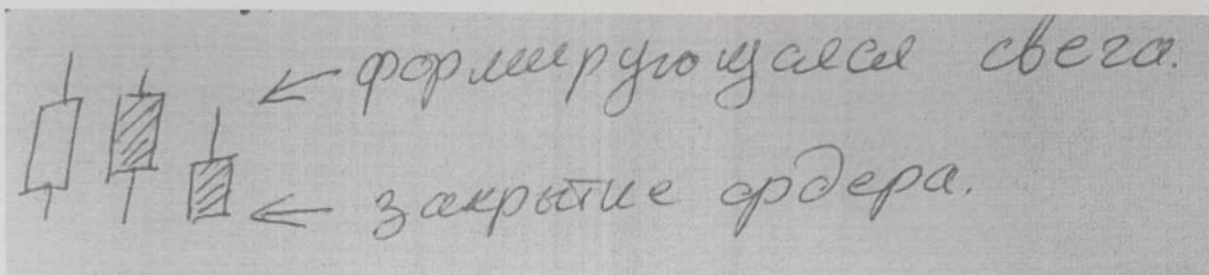 формирующаяся свеча.
закрытие ордера.